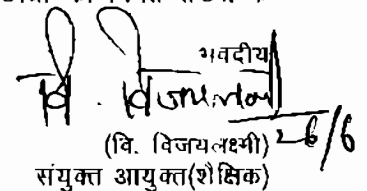 भवदीय
वि. विजयलक्ष्मी 26/6
(वि. विजयलक्ष्मी)
संयुक्त आयुक्त(शैक्षिक)